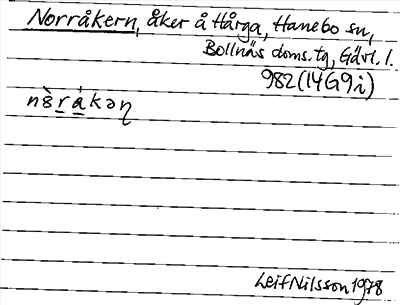 Norråkern, åker å Hårga, Hanebo sn,
Bollnäs doms.tg, Gävl. l.
982 (14G9i)
nɞ̀rákəɳ
Leif Nilsson 1978